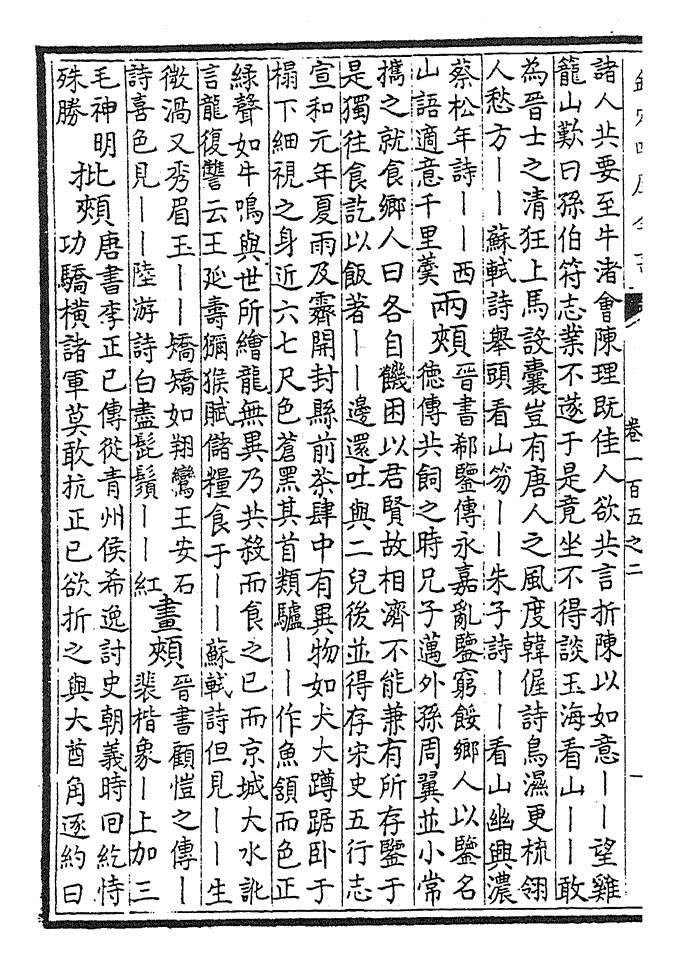 卷一百五之二
諸人共要至牛渚會陳理既佳人欲共言折陳以如意丨丨望雞
籠山歎曰孫伯符志業不遂于是竟坐不得談玉海看山丨丨敢
為晉士之清狂上馬設囊豈有唐人之風度韓偓詩鳥濕更梳翎
人愁方丨丨蘇軾詩舉頭看山笏丨丨朱子詩丨丨看山幽興濃
蔡松年詩丨丨西
山語適意千里羹
兩頰
晉書郗鑒傳永嘉亂鑒窮餒鄉人以鑒名
德傳共飼之時兄子邁外孫周翼並小常
攜之就食鄉人曰各自饑困以君賢故相濟不能兼有所存鑒于
是獨往食訖以飯著丨丨邊還吐與二兒後並得存宋史五行志
宣和元年夏雨及霽開封縣前茶肆中有異物如犬大蹲踞卧于
榻下細視之身近六七尺色蒼黑其首類驢丨丨作魚頷而色正
綠聲如牛鳴與世所繪龍無異乃共殺而食之已而京城大水訛
言龍復讐云王延壽獼猴賦儲糧食于丨丨蘇軾詩但見丨丨生
微渦又秀眉玉丨丨矯矯如翔鸞王安石
詩喜色見丨丨陸游詩白盡髭鬚丨丨紅
畫頰
晉書顧愷之傳丨
裴楷象丨上加三
毛神明
殊勝
批頰
唐書李正已傳從青州侯希逸討史朝義時回紇恃
功驕橫諸軍莫敢抗正已欲折之與大酋角逐約曰